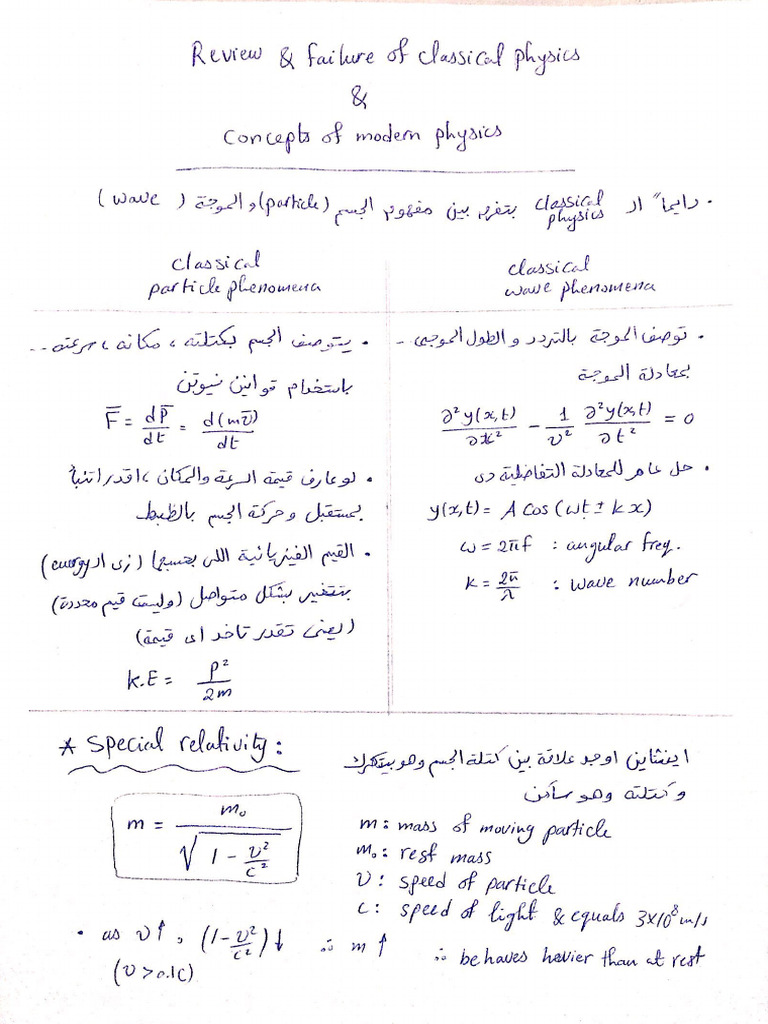 Review & failure of classical physics
&
Concepts of modern physics
• دايماً ال classical physics بتفرق بين مفهوم الجسم (particle) والموجة (wave)
classical
particle phenomena
• يتوصف الجسم بكتلته، مكانه، سرعته ..
باستخدام قوانين نيوتن
F̅ = dP̅/dt = d(mv̅)/dt
• لو عارف قيمة السرعة والمكان، اقدر اتنبأ
بمستقبل وحركة الجسم بالظبط
• القيم الفيزيائية اللى بحسبها (زى ال energy)
بتتغير بشكل متواصل (وليست قيم محددة)
(يعنى تقدر تاخد اى قيمة)
K.E = P²/2m
classical
wave phenomena
• توصف الموجة بالتردد والطول الموجى ..
بمعادلة الموجة
∂²y(x,t)/∂x² - 1/v² ∂²y(x,t)/∂t² = 0
• حل عام للمعادلة التفاضلية دى
y(x,t) = A cos(ωt ± kx)
ω = 2πf : angular freq.
k = 2π/λ : wave number
* Special relativity:
اينشتاين اوجد علاقة بين كتلة الجسم وهو بيتحرك
وكتلته وهو ساكن
m = m₀/√(1 - v²/c²)
m: mass of moving particle
m₀: rest mass
v: speed of particle
c: speed of light & equals 3x10⁸ m/s
• as v↑, (1-v²/c²)↓ ∴ m↑ ∴ behaves hevier than at rest
(v > 0.1c)